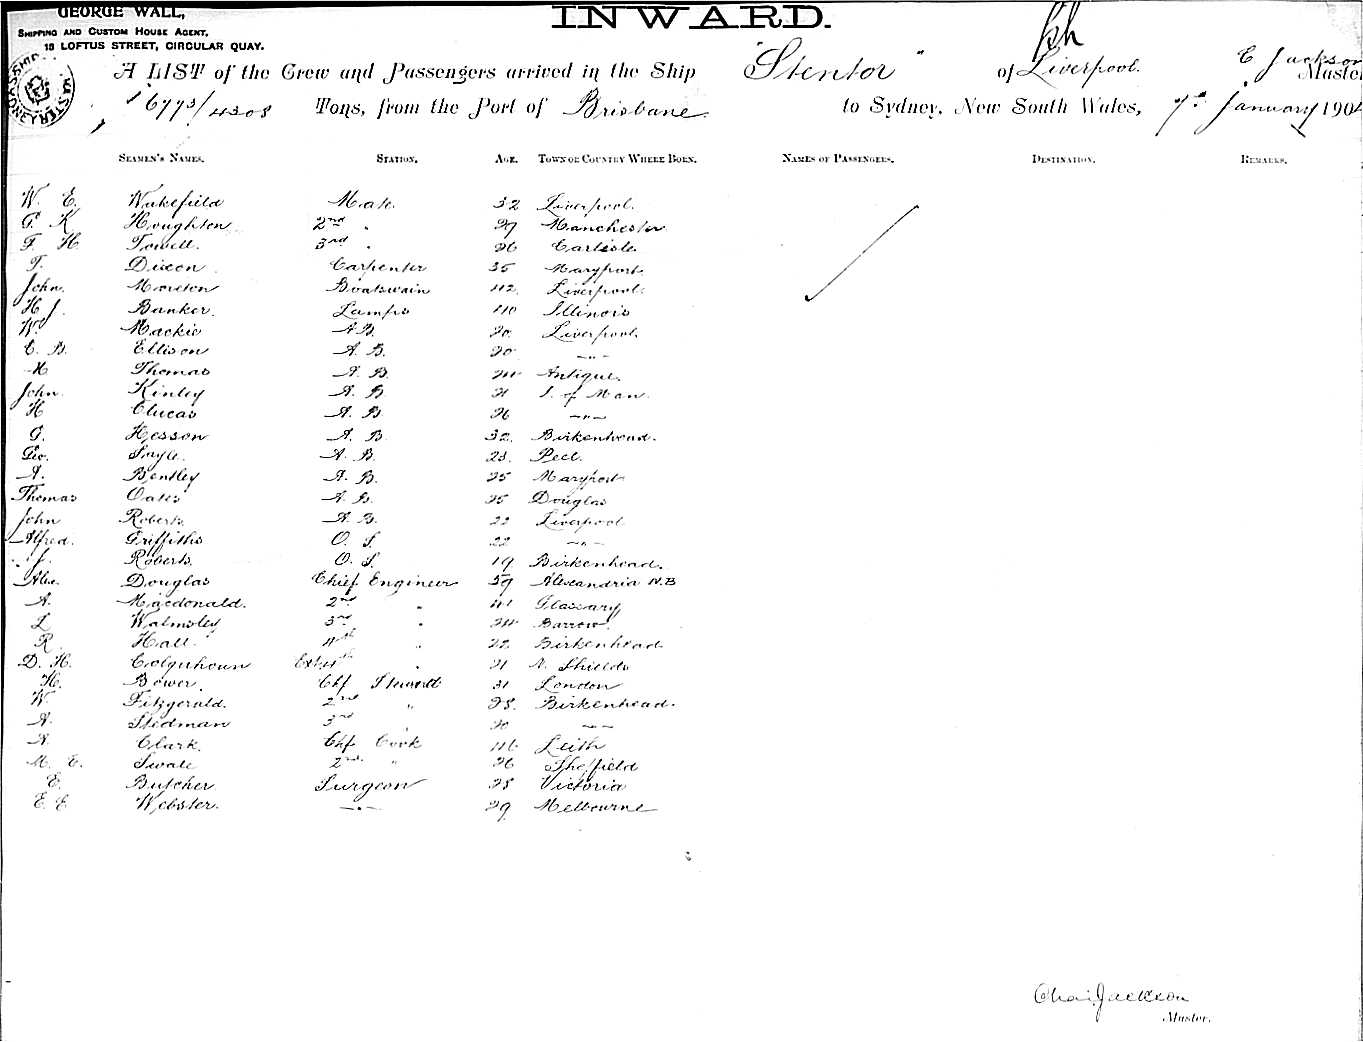 GEORGE WALL,
SHIPPING AND CUSTOM HOUSE AGENT,
18 LOFTUS STREET, CIRCULAR QUAY.
INWARD.
A LIST of the Crew and Passengers arrived in the Ship "Stentor" of Liverpool. C Jackson Master
6773/4308 Tons, from the Port of Brisbane to Sydney, New South Wales, 7th January 1904
SEAMEN'S NAMES. STATION. AGE. TOWN OR COUNTRY WHERE BORN. NAMES OF PASSENGERS. DESTINATION. REMARKS.
W. E. Wakefield Mate 32 Liverpool.
G. K Houghton 2nd " 29 Manchester
F. H Towell. 3rd " 26 Carlisle
T. Dixon Carpenter 35 Maryport
John. Boatswain 42 Liverpool.
H J. Banker. Lamps 40 Illinois
W. Mackie A.B. 20 Liverpool.
C. B. Ellison A. B. 20 — " —
H Thomas A. B 24 Antigua.
John Kinley A. B 21 I. of Man.
H Clucas A. B 26 — " —
G. Hesson A. B 32. Birkenhead.
Geo. Sayle. A. B. 23. Peel.
A. Bentley A. B. 25 Maryport
Thomas Oates A B. 25 Douglas
John Roberts A. B. 22 Liverpool
Alfred. Griffiths O. S. 22 — " —
J. Roberts. O. S. 19 Birkenhead.
Alex. Douglas Chief Engineer 59 Alexandria N.B
A. Macdonald. 2nd " 41 Glassary
L Walmsley 3rd " 24 Barrow.
R Hall. 4th " 22 Birkenhead
D. H. Colquhoun Ex 4th " 21 N. Shields
H. Bower. Chf Steward 31 London
W Fitzgerald. 2nd " 28. Birkenhead.
A. Stedman 3rd 20 — " —
A. Clark. Chf Cook 46 Leith
M. E. Swale 2nd " 26 Sheffield
E. Butcher Surgeon 28 Victoria
E E Webster. — " — 29 Melbourne
Chas. Jackson
Master.